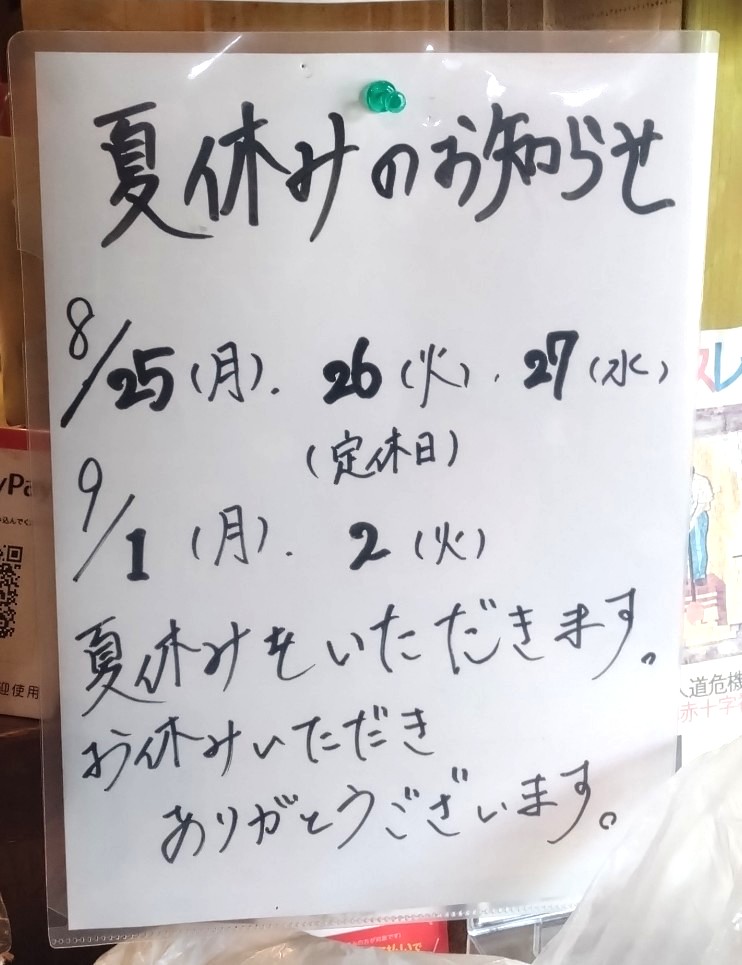 夏休みのお知らせ
8/25(月). 26(火). 27(水)
(定休日)
9/1(月). 2(火)
夏休みをいただきます。
お休みいただき
ありがとうございます。
yPay
迎使用
スレ
人道危機
赤十字